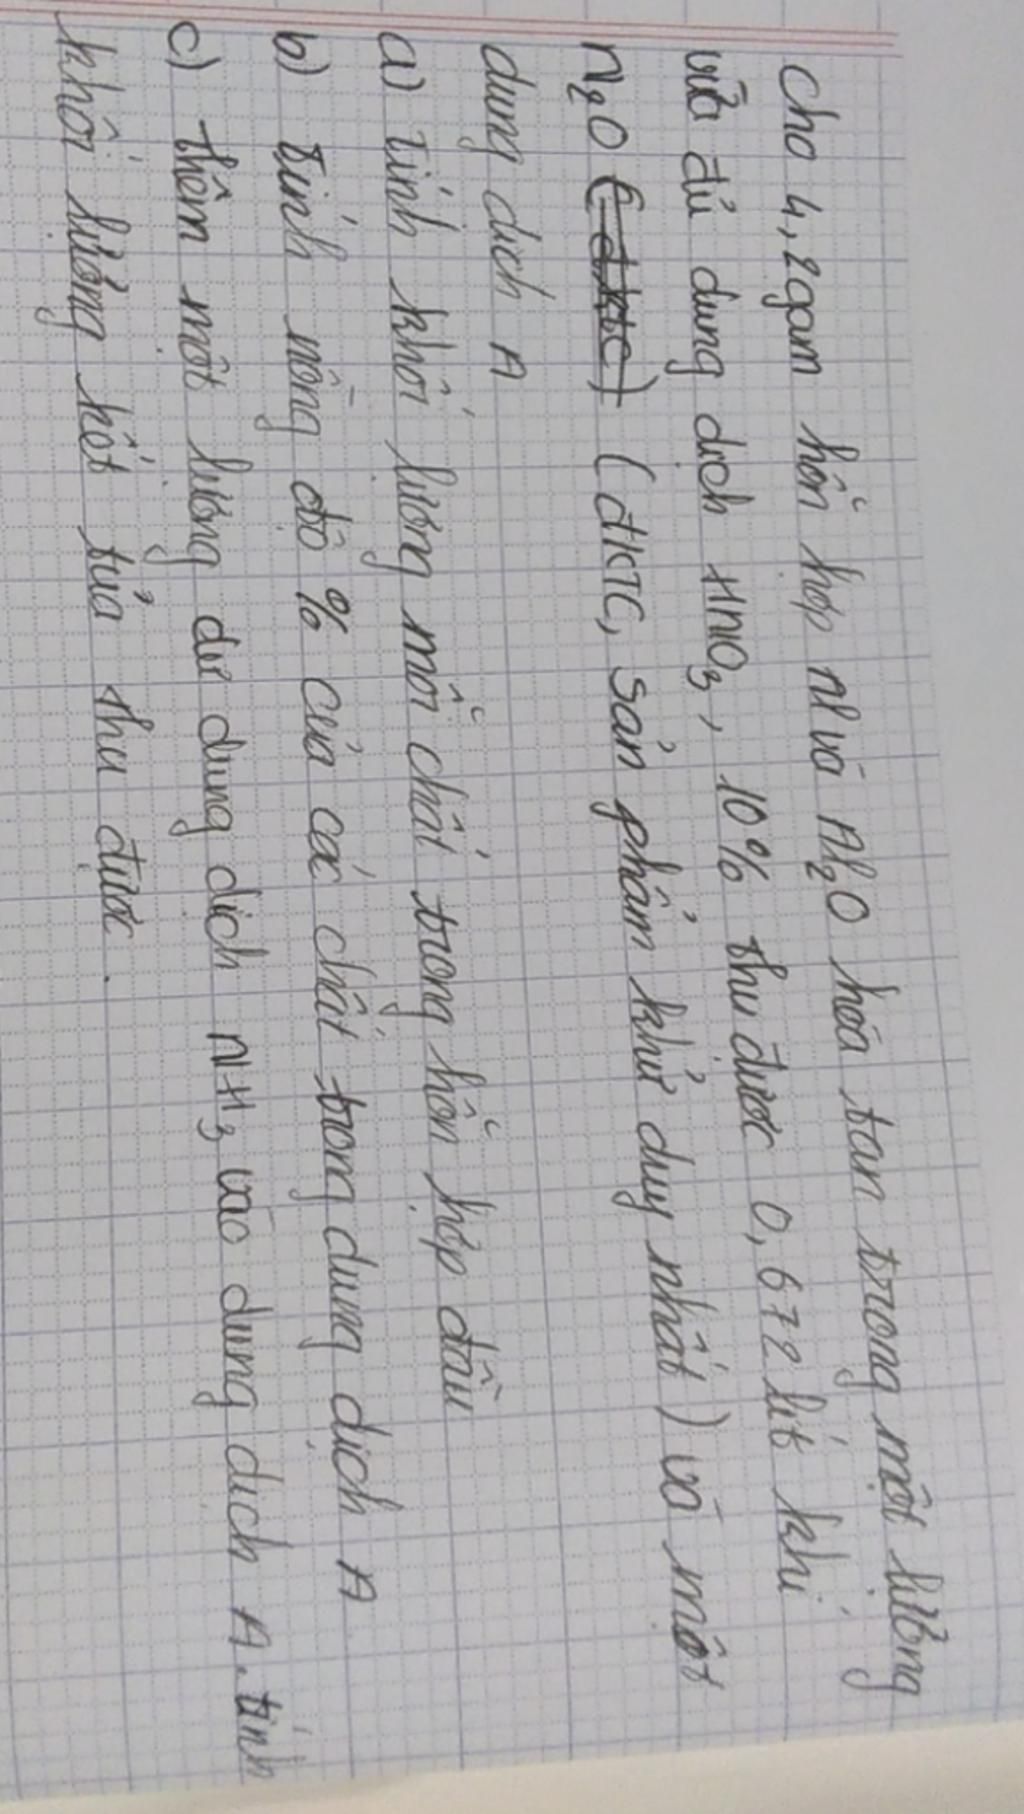 Cho 4,2gam hỗn hợp Al và Al₂O hòa tan trong một lượng
vừa đủ dung dịch HNO₃, 10% thu được 0,672 lít khí
N₂O (đktc) (đKTC, sản phẩm khử duy nhất) và một
dung dịch A
a) Tính khối lượng mỗi chất trong hỗn hợp đầu
b) Tính nồng độ % của các chất trong dung dịch A
c) Thêm một lượng dư dung dịch NH₃ vào dung dịch A. tính
khối lượng kết tủa thu được.